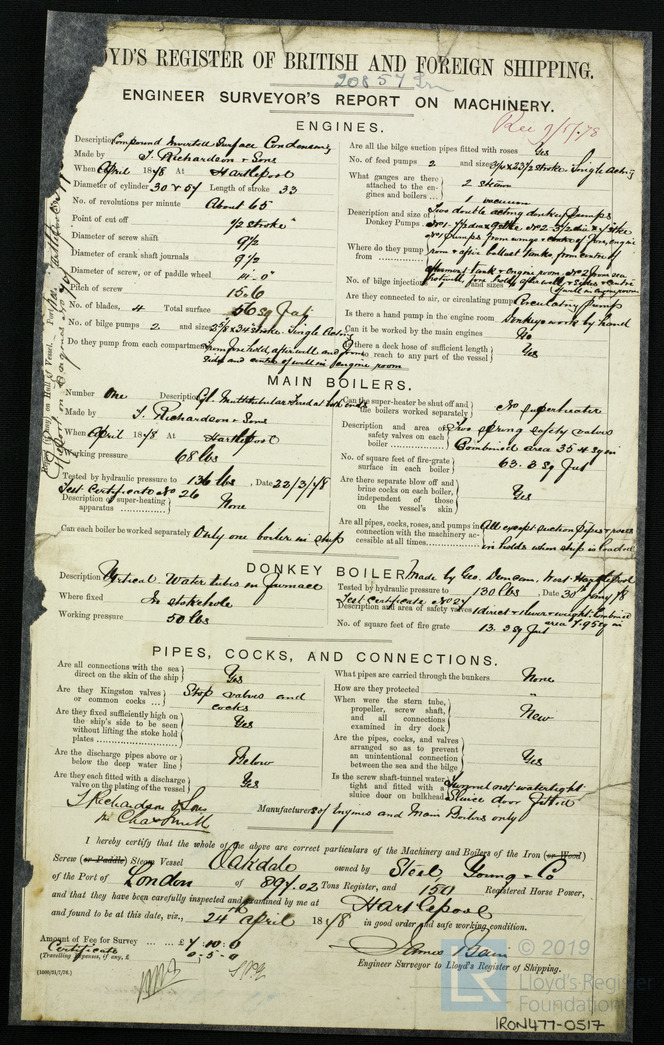 LOYD'S REGISTER OF BRITISH AND FOREIGN SHIPPING.
20857 Irn
ENGINEER SURVEYOR'S REPORT ON MACHINERY.
Rec 9/5/78
ENGINES.
Description Compound Inverted Surface Condensing
Made by T. Richardson & Sons
When April 1878 At Hartlepool
Diameter of cylinder 30 & 57 Length of stroke 33
No. of revolutions per minute About 65
Point of cut off 1/2 stroke
Diameter of screw shaft 9 1/2
Diameter of crank shaft journals 9 1/2
Diameter of screw, or of paddle wheel
Pitch of screw 15.6
No. of blades, 4 Total surface 56 sq feet
No. of bilge pumps 2 and size stroke. Single Acting
Do you pump from each compartment From fore hold, after well and from
side and centre of well in engine room
Are all the bilge suction pipes fitted with roses Yes
No. of feed pumps 2 and size stroke Single Acting
What gauges are there attached to the engines and boilers ... 2 steam
1 vacuum
Description and size of Donkey Pumps Two double acting donkey pumps
Where do they pump from
No. of bilge injections and sizes
Are they connected to air, or circulating pump Circulating pump
Is there a hand pump in the engine room Donkey works by hand
Can it be worked by the main engines No
Is there a deck hose of sufficient length to reach to any part of the vessel Yes
MAIN BOILERS.
Number One Description Cyl. Multitubular Fired at both ends
Made by T. Richardson & Sons
When April 1878 At Hartlepool
Working pressure 68 lbs
Tested by hydraulic pressure to 136 lbs, Date 22/3/78
Test Certificate No 26
Description of super-heating apparatus None
Can each boiler be worked separately Only one boiler in ship
Can the super-heater be shut off and the boilers worked separately No superheater
Description and area of safety valves on each boiler Two spring safety valves
Combined area 35.4 sq in
No. of square feet of fire-grate surface in each boiler 63.3 sq feet
Are there separate blow off and brine cocks on each boiler, independent of those on the vessel's skin Yes
Are all pipes, cocks, roses, and pumps in connection with the machinery accessible at all times All except suction pipes & roses
in holds when ship is loaded
DONKEY BOILER Made by Geo. Denham, West Hartlepool
Description Vertical. Water tubes in furnace
Where fixed In stokehole
Working pressure 50 lbs
Tested by hydraulic pressure to 130 lbs, Date 30th Jany 78
Test certificate No 24
Description and area of safety valves 1 direct & lever & weight. Combined
area 7.95 sq in
No. of square feet of fire grate 13.3 sq feet
PIPES, COCKS, AND CONNECTIONS.
Are all connections with the sea direct on the skin of the ship Yes
Are they Kingston valves or common cocks ... Stop valves and
cocks
Are they fixed sufficiently high on the ship's side to be seen without lifting the stoke hold plates Yes
Are the discharge pipes above or below the deep water line Below
Are they each fitted with a discharge valve on the plating of the vessel Yes
What pipes are carried through the bunkers None
How are they protected "
When were the stern tube, propeller, screw shaft, and all connections examined in dry dock New
Are the pipes, cocks, and valves arranged so as to prevent an unintentional connection between the sea and the bilge Yes
Is the screw shaft-tunnel water tight and fitted with a sluice door on bulkhead Tunnel not watertight
Sluice door fitted
T Richardson & Sons
Manufacturers of Engines and Main Boilers only
I hereby certify that the whole of the above are correct particulars of the Machinery and Boilers of the Iron (or Wood)
Screw (or Paddle) Steam Vessel Oakdale owned by Steel Young & Co
of the Port of London of 897.02 Tons Register, and 150 Registered Horse Power,
and that they have been carefully inspected and examined by me at Hartlepool
and found to be at this date, viz., 24th April 1878 in good order and safe working condition.
Amount of Fee for Survey ... £ 7.10.0
Certificate 0.5.0
(Travelling Expenses, if any, £
Engineer Surveyor to Lloyd's Register of Shipping.
LR © 2019
Lloyd's Register
Foundation
IRON477-0517